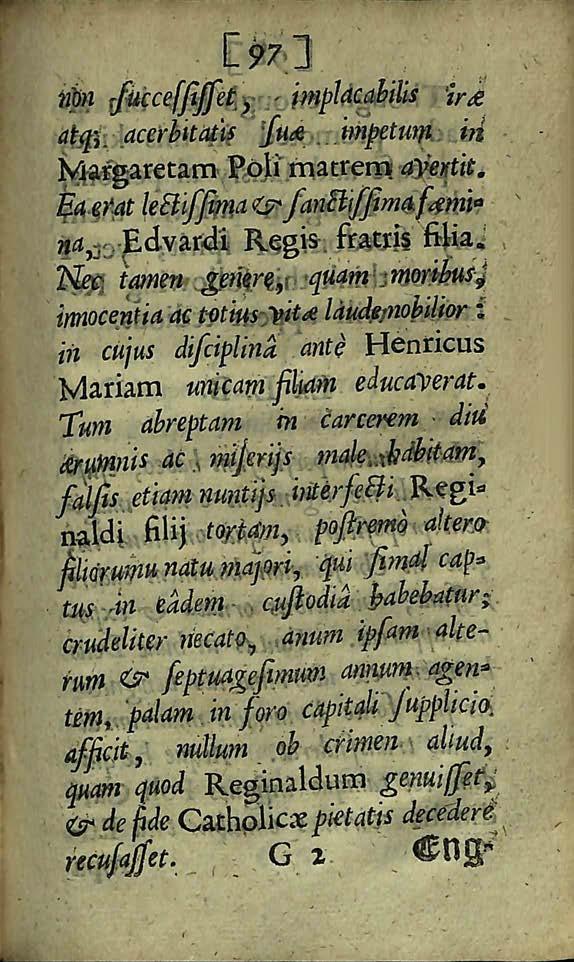 [ 97 ]
non ſucceſſiſſet, implacabilis iræ
atq; acerbitatis ſuæ impetum in
Margaretam Poli matrem avertit.
Ea erat lectiſſima & ſanctiſſima fæmi-
na, Edvardi Regis fratris filia.
Nec tamen genere, quam moribus,
innocentia ac totius vitæ laude nobilior :
in cujus diſciplinâ antè Henricus
Mariam unicam filiam educaverat.
Tum abreptam in carcerem diu
ærumnis ac miſerijs male habitam,
falſis etiam nuntijs interfecti Regi-
naldi filij tortam, poſtremò altero
filiorumu natu majori, qui ſimal cap-
tus in eâdem cuſtodiâ habebatur;
crudeliter necato, anum ipſam alte-
rum & ſeptuageſimum annum agen-
tem, palam in foro capitali ſupplicio
afficit, nullum ob crimen aliud,
quam quod Reginaldum genuiſſet,
& de fide Catholicæ pietatis decedere
recuſaſſet. G 2 Eng-